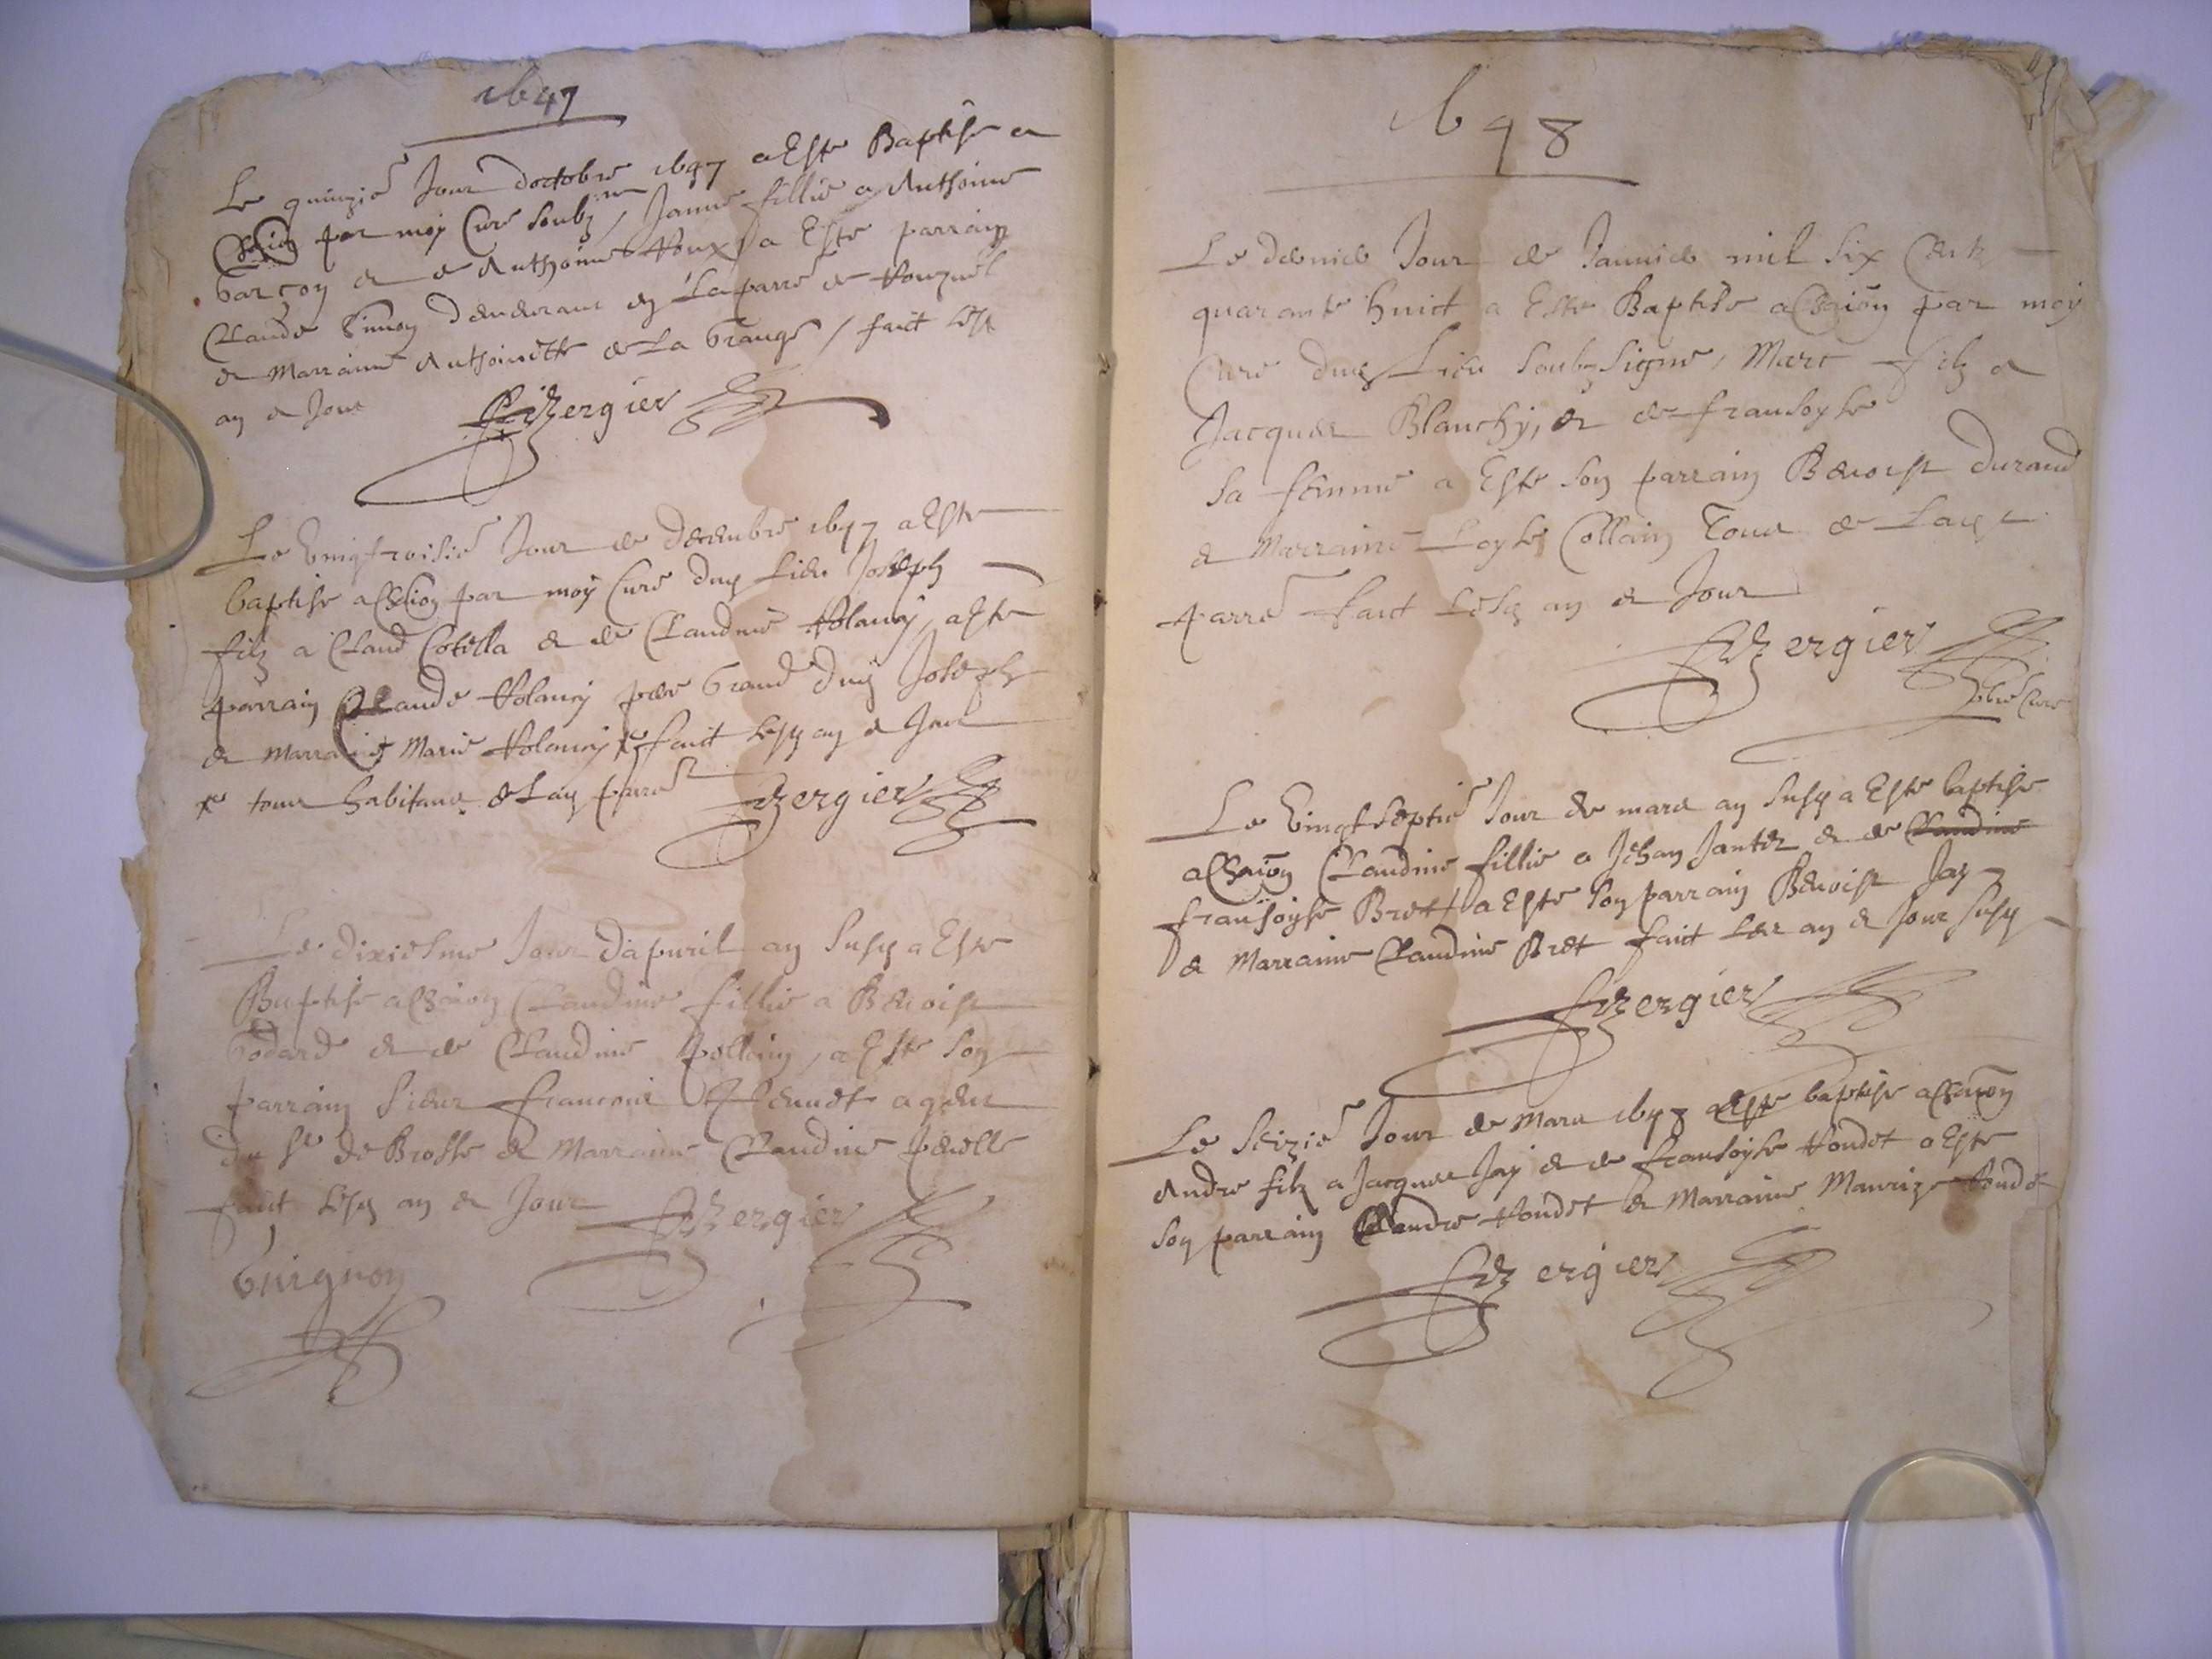 1647
Le quinzie Jour doctobre 1647 a Este Baptise a
Chaion par moy Cure soubzne / Janne fillie a Anthoine
Garçon et de Anthoine Roux / a Este parrain
Claude Simon demeurant en la parre de
et Marraine Anthoinette de la Grange / fait lesd
an et Jour Bergier
Le vingtroisie Jour de decembre 1647 a Este
baptise a Chaion par moy Cure dud lieu Joseph
filz a Claud Cotilla et de Claudine Volancy, a Este
parrain Claude Volancy pere Grand dud Joseph
et Marraine Marie Volancy fait lesd an et Jour
tous habitans de lad parre Bergier
Le dixiesme Jour dapvril an susd a Este
Baptise a Chaion Claudine fillie a Benoist
Godard et de Claudine pollain, a Este son
parrain sieur francois agent
du sr de Brosse et Marraine Claudine
fait lesd an et Jour Bergier
Guignon
1648
Le dernier Jour de Janvier mil six Centz
quarante huict a Este Baptise a Chaion par moy
Cure dud Lieu soubzsigne, Marc filz a
Jacques Blanchy, et de fransoyse
sa femme a Este son parrain Benoist durand
et Marraine Loyse Collain Tous de lad
parre fait lesd an et Jour
Bergier
Cure
Le vingtseptie Jour de mars an susd a Este baptise
a Chaion Claudine fillie a Jehan Jantet et de Claudine
fransoyse Bret / a Este son parrain Benoist Jay
et Marraine Claudine Bret fait les an et Jour susd
Bergier
Le seizie Jour de Mars 1648 a Este baptise a Chaion
Andre filz a Jacques Jay et de fransoyse Voudet a Este
son parrain Andre Voudet et Marraine Maurize Voude
Bergier